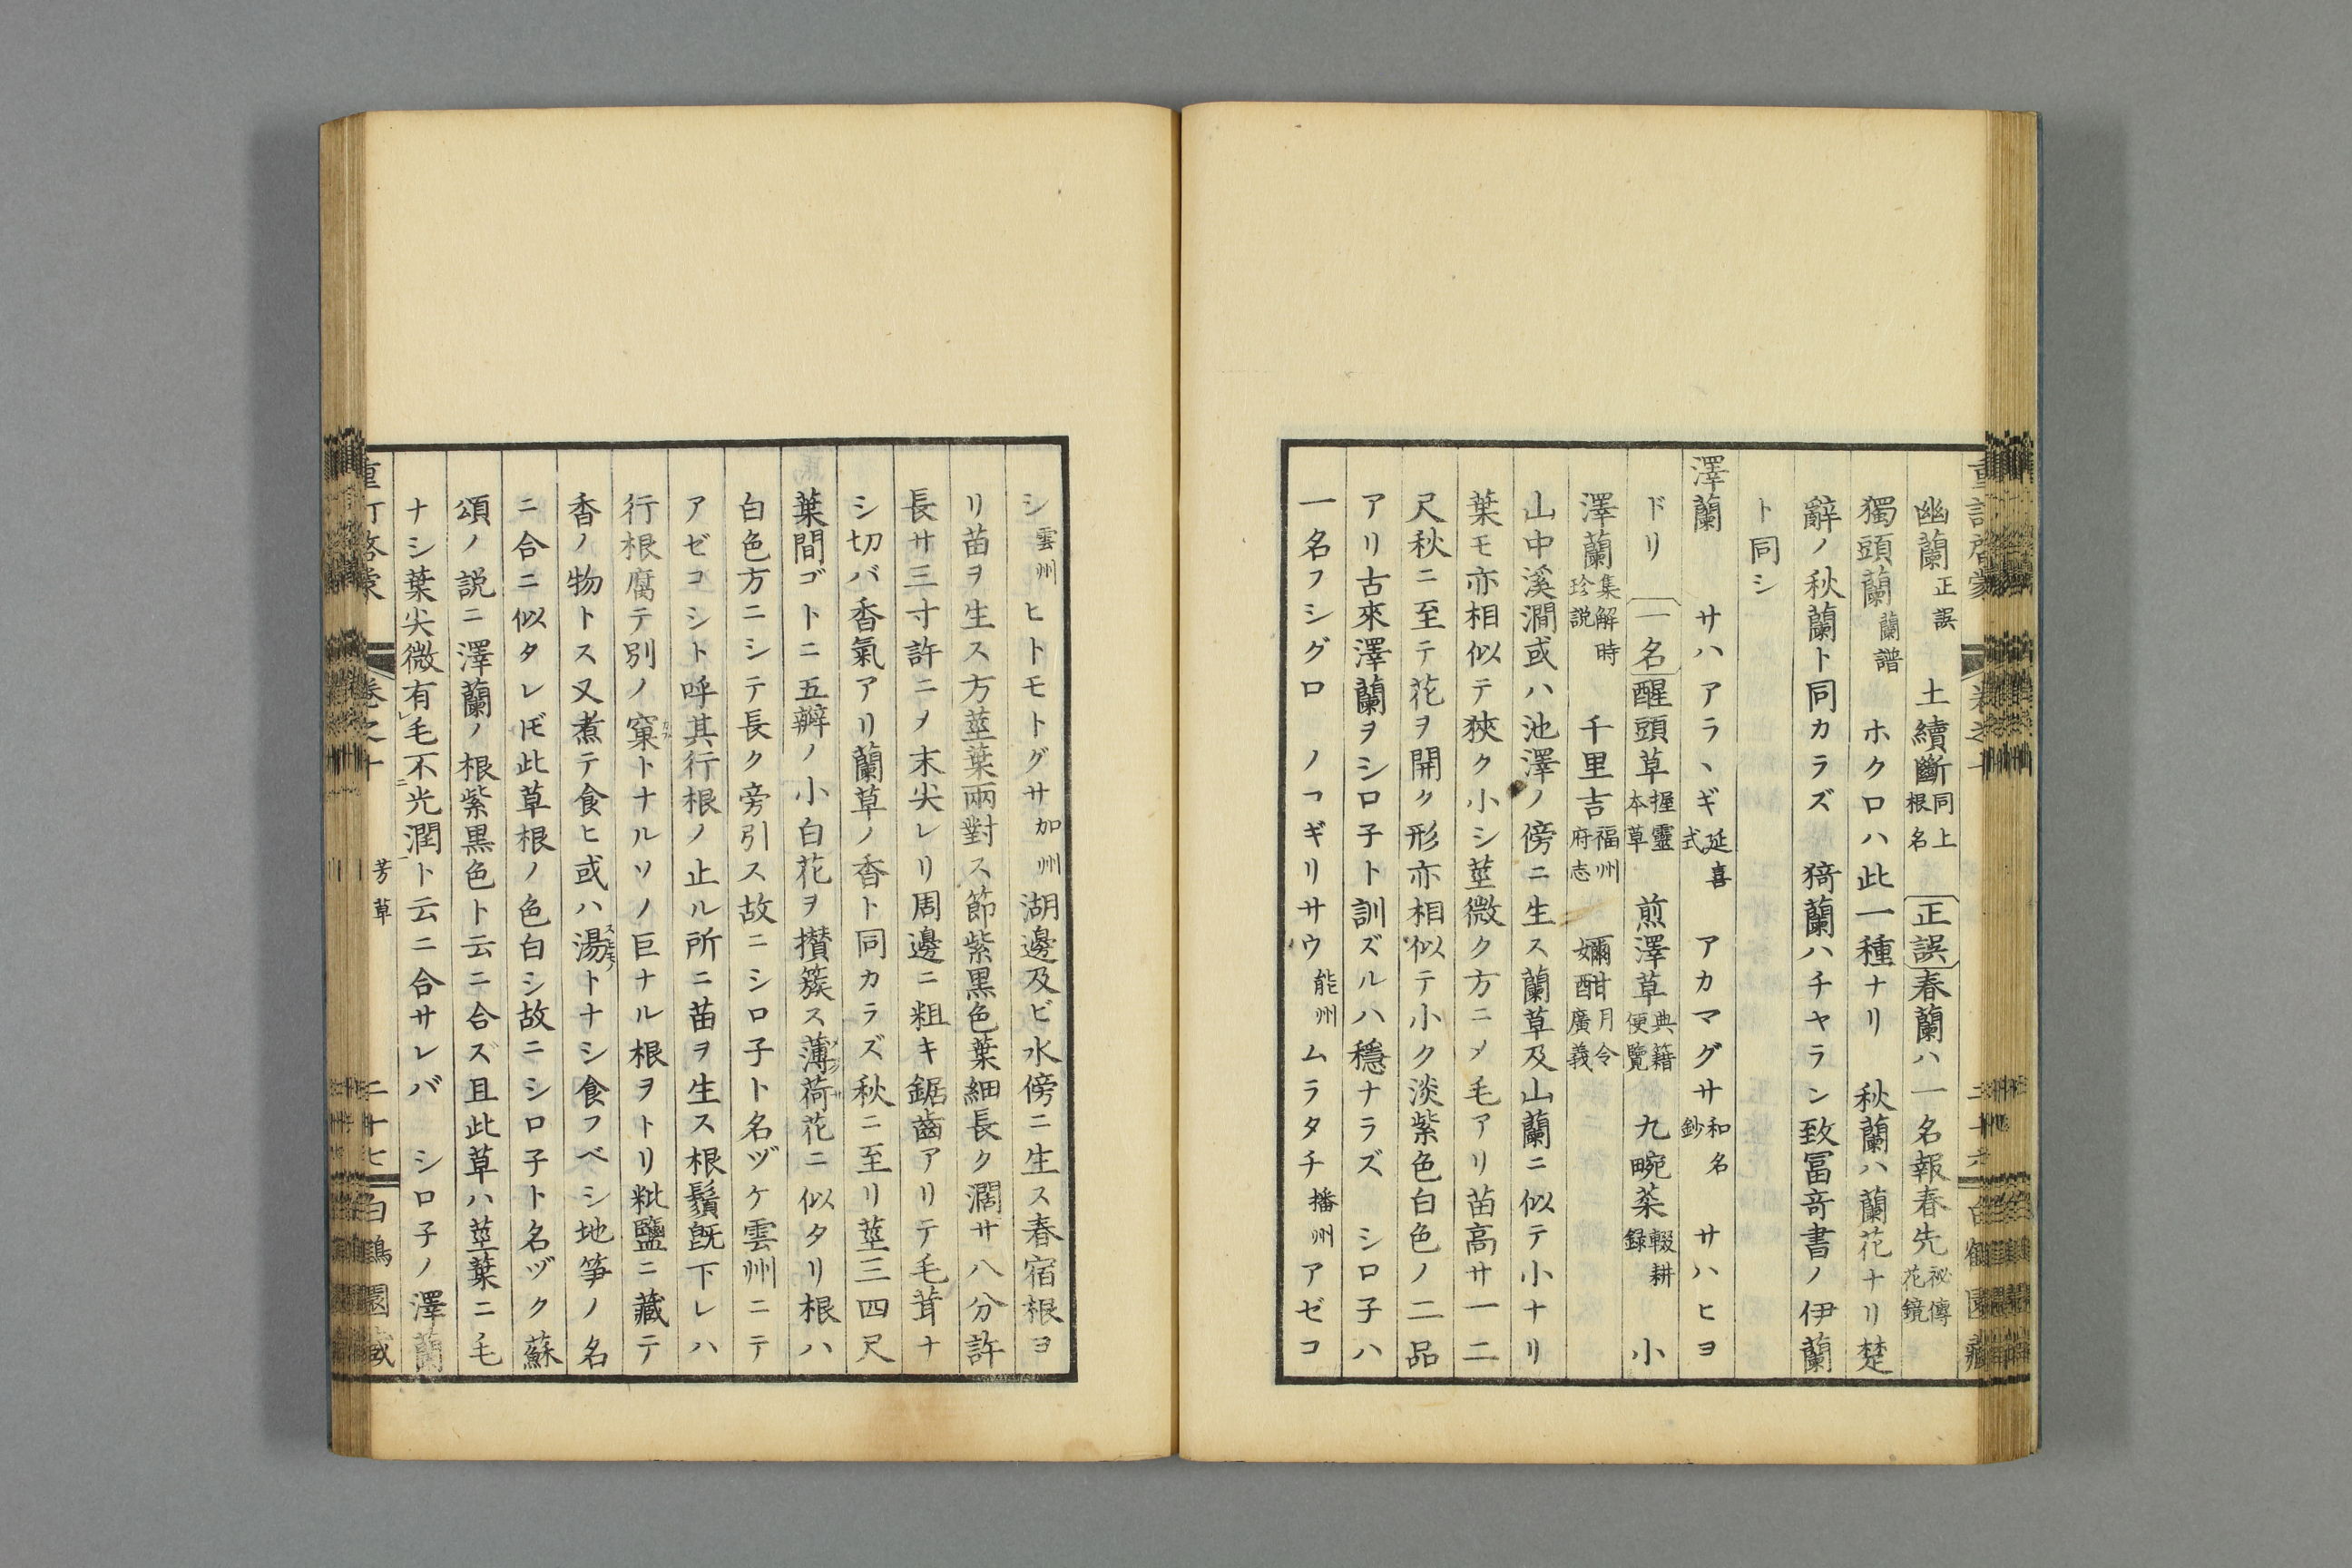 幽蘭正誤 土續斷同上根名 正誤春蘭ハ一名報春先祕傳花鏡
獨頭蘭蘭譜 ホクロハ此一種ナリ 秋蘭ハ蘭花ナリ楚
辭ノ秋蘭ト同カラズ 猗蘭ハチヤラン致冨奇書ノ伊蘭
ト同シ
澤蘭 サハアラヽギ延喜式 アカマグサ和名鈔 サハヒヨ
ドリ 一名醒頭草握靈本草 煎澤草典籍便覽 九畹菜輟耕録 小
澤蘭集解時珍説 千里吉福州府志 嬭酣月令廣義
山中溪澗或ハ池澤ノ傍ニ生ス蘭草及山蘭ニ似テ小ナリ
葉モ亦相似テ狹ク小シ莖微ク方ニメ毛アリ苗高サ一二
尺秋ニ至テ花ヲ開ク形亦相似テ小ク淡紫色白色ノ二品
アリ古來澤蘭ヲシロ子ト訓ズルハ穩ナラズ シロ子ハ
一名フシグロ ノコギリサウ能州 ムラタチ播州 アゼコ
シ雲州 ヒトモトグサ加州 湖邊及ビ水傍ニ生ス春宿根ヨ
リ苗ヲ生ス方莖葉兩對ス節紫黒色葉細長ク濶サ八分許
長サ三寸許ニメ末尖レリ周邊ニ粗キ鋸齒アリテ毛茸ナ
シ切バ香氣アリ蘭草ノ香ト同カラズ秋ニ至リ莖三四尺
葉間ゴトニ五瓣ノ小白花ヲ攅簇ス薄荷花ニ似タリ根ハ
白色方ニシテ長ク旁引ス故ニシロ子ト名ヅケ雲州ニテ
アゼコシト呼其行根ノ止ル所ニ苗ヲ生ス根鬚旣下レハ
行根腐テ別ノ窠トナルソノ巨ナル根ヲトリ粃鹽ニ藏テ
香ノ物トス又煮テ食ヒ或ハ湯トナシ食フベシ地笋ノ名
ニ合ニ似タレ𪜈此草根ノ色白シ故ニシロ子ト名ヅク蘇
頌ノ説ニ澤蘭ノ根紫黒色ト云ニ合ズ且此草ハ莖葉ニ毛
ナシ葉尖微有毛不光潤ト云ニ合サレバ シロ子ノ澤蘭
芳草
二十七